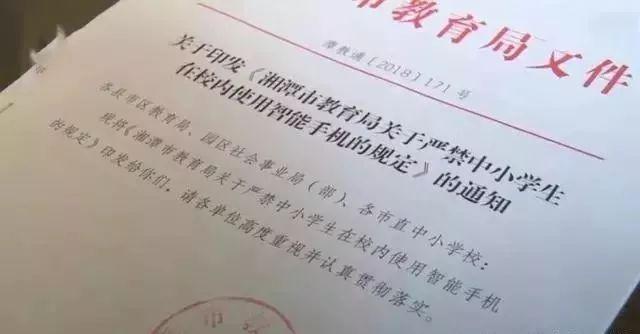 市教育局文件
潭教通〔2018〕171号
关于印发《湘潭市教育局关于严禁中小学生
在校内使用智能手机的规定》的通知
各县市区教育局、园区社会事业局(部)、各市直中小学校:
现将《湘潭市教育局关于严禁中小学生在校内使用智能手机
的规定》印发给你们,请各单位高度重视并认真贯彻落实。